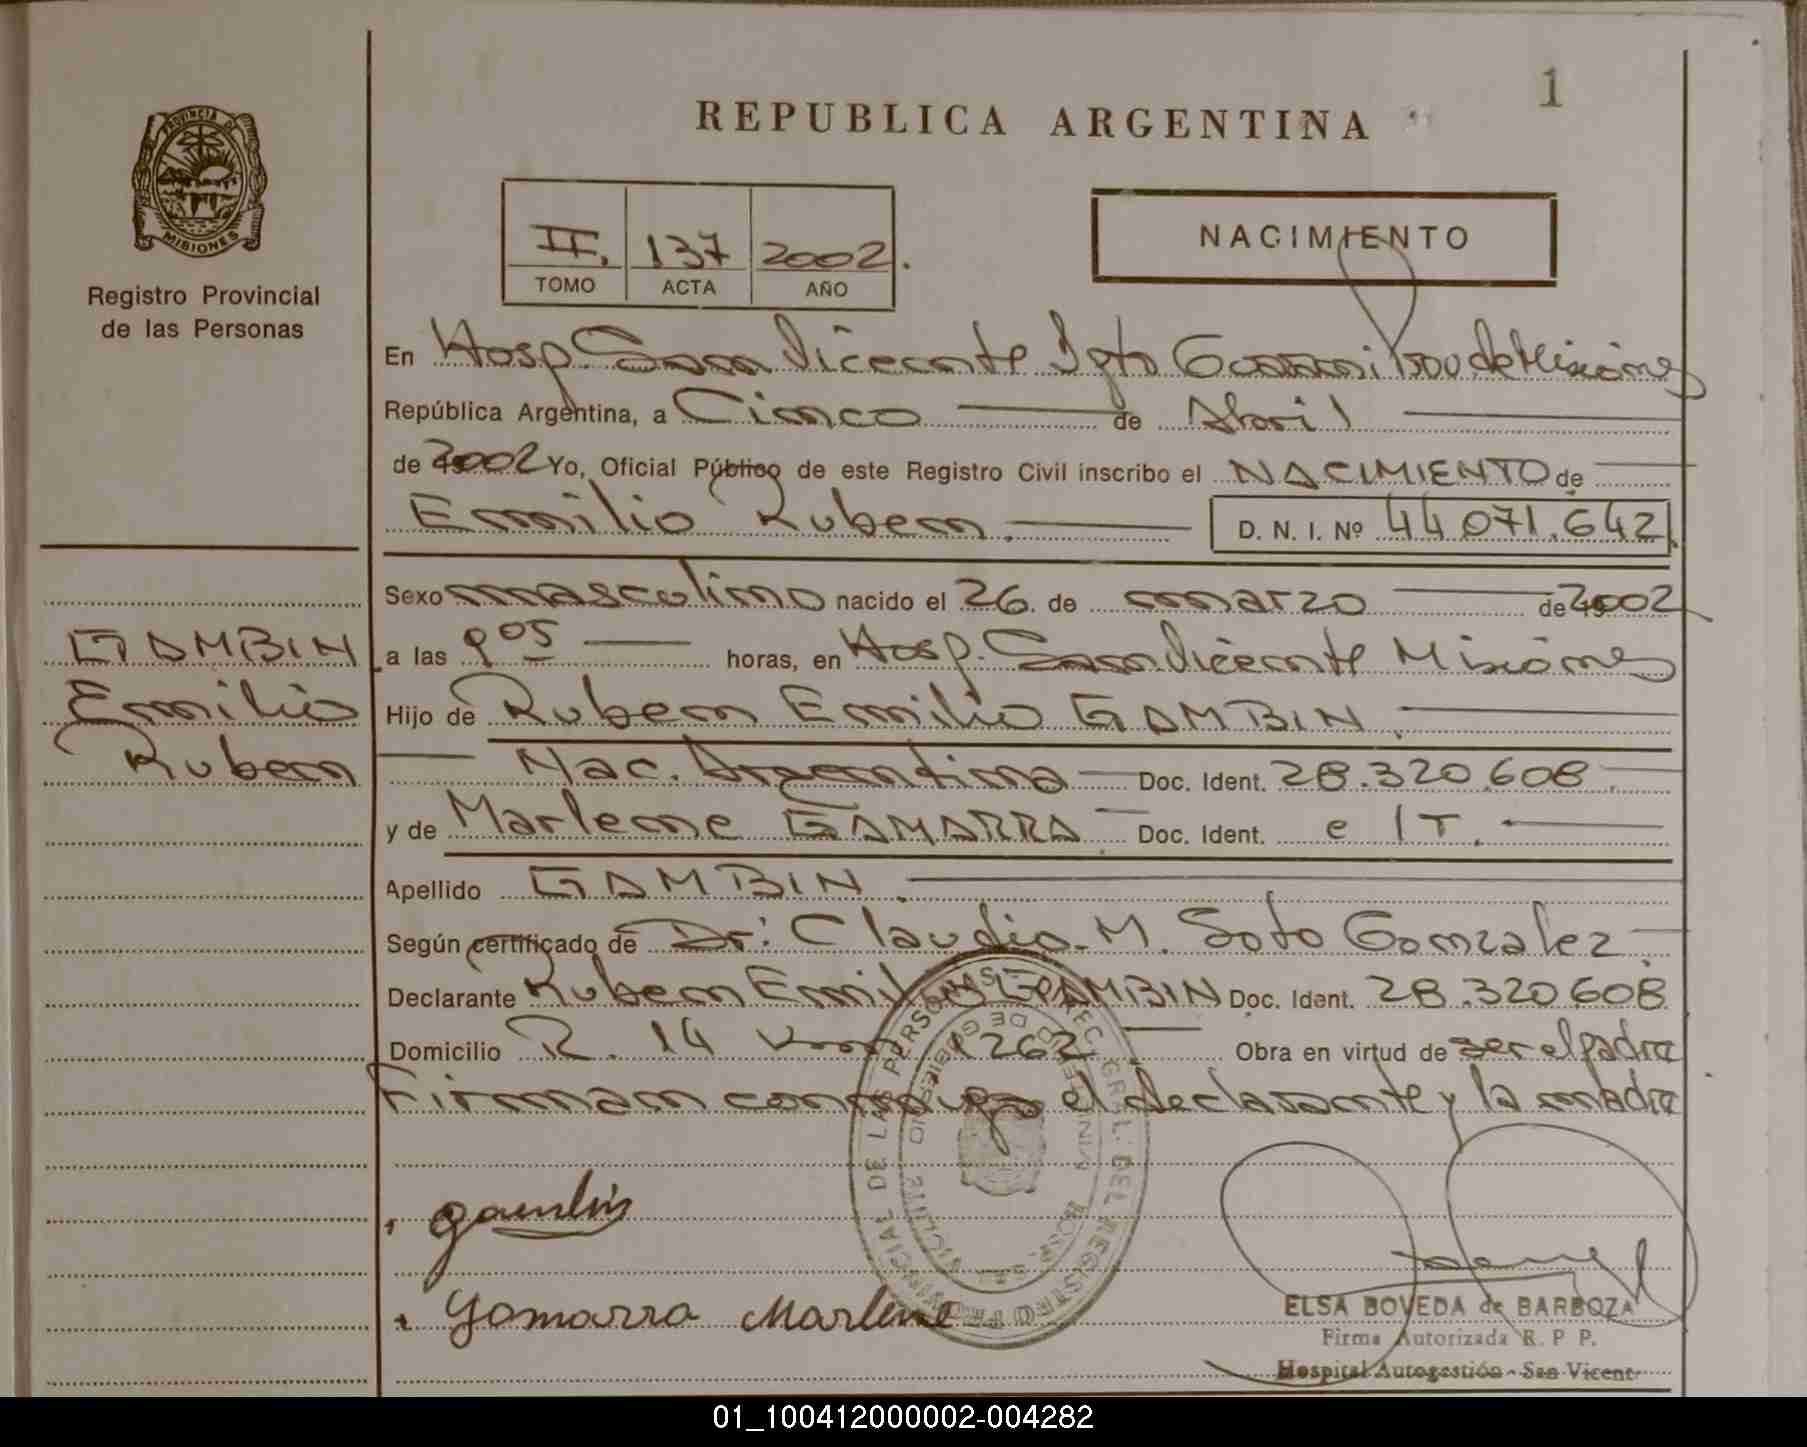 1
REPUBLICA ARGENTINA
PROVINCIA DE
MISIONES
Registro Provincial
de las Personas
II. 137 2002.
TOMO ACTA AÑO
NACIMIENTO
En Hosp. San Vicente Dpto Guarani Prov de Misiones
República Argentina, a Cinco de Abril
de 2002 Yo, Oficial Público de este Registro Civil inscribo el NACIMIENTO de
Emilio Ruben. D. N. I. Nº 44.071.642
Sexo masculino nacido el 26 de marzo de 2002
a las 9 05 horas, en Hosp. San Vicente Misiones
Hijo de Ruben Emilio GAMBIN.
Nac. Argentina Doc. Ident. 28.320.608
y de Marlene GAMARRA Doc. Ident. e IT.
Apellido GAMBIN.
Según certificado de Dr: Claudio M. Soto Gonzalez.
Declarante Ruben Emilio GAMBIN Doc. Ident. 28.320.608
Domicilio R. 14 Km 1262 Obra en virtud de ser el padre
Firman conmigo el declarante y la madre
GAMBIN
Emilio
Ruben
Gambin
Gamarra Marlene
ELSA BOVEDA de BARBOZA
Firma Autorizada R. P P.
Hospital Autogestión - San Vicente
01_100412000002-004282